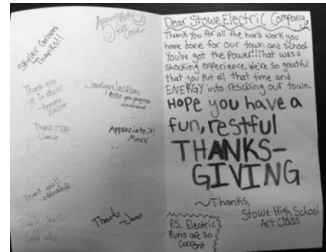 Skyler Green
Thanks!!
Thank you
Thank you
Appreciate it!
Maxx
Thank you!!
Thanks
Dear Stowe Electric Company,
Thank you for all the hard work you
have done for our town and school
You've got the Power! That was a
shocking experience. We're so grateful
that you put all that time and
ENERGY into rescuing our town.
HOPE you have a
fun, restful
THANKS-
GIVING
~Thanks,
Stowe High School
Art Class
P.S. Electric
Puns are so
current